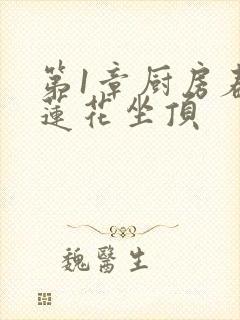 第1章厨房春
蓮花坐頂
魏醫生